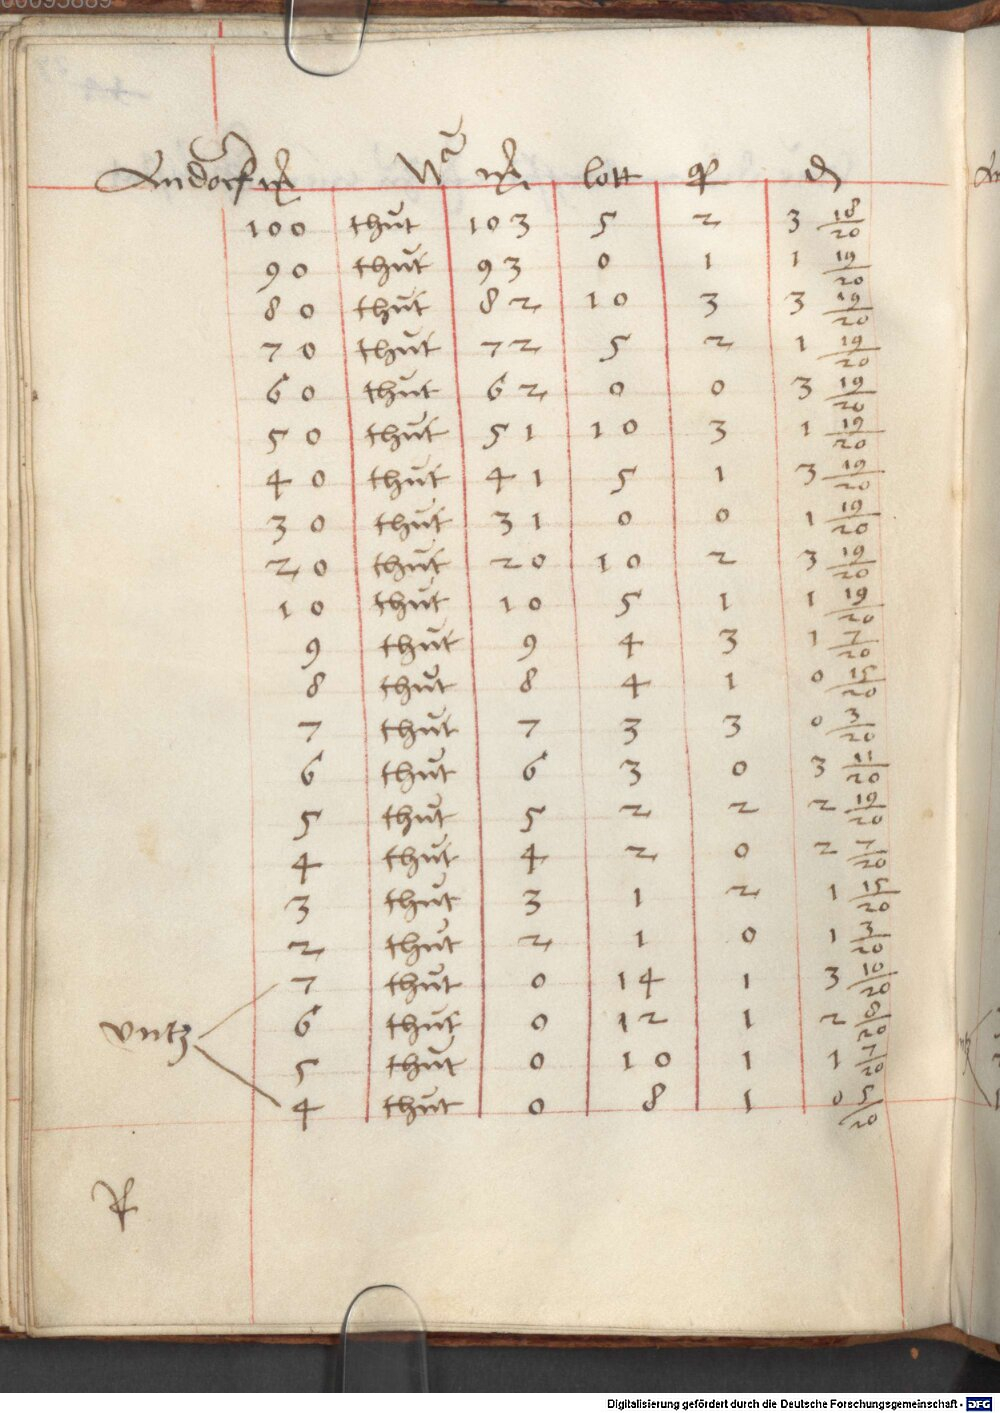 Andorf
lott
100 thut 103 5 2 3 18/20
90 thut 93 0 1 1 19/20
80 thut 82 10 3 3 19/20
70 thut 72 5 2 1 19/20
60 thut 62 0 0 3 19/20
50 thut 51 10 3 1 19/20
40 thut 41 5 1 3 19/20
30 thut 31 0 0 1 19/20
20 thut 20 10 2 3 19/20
10 thut 10 5 1 1 19/20
9 thut 9 4 3 1 7/20
8 thut 8 4 1 0 15/20
7 thut 7 3 3 0 3/20
6 thut 6 3 0 3 11/20
5 thut 5 2 2 2 19/20
4 thut 4 2 0 2 7/20
3 thut 3 1 2 1 15/20
2 thut 2 1 0 1 3/20
7 thut 0 14 1 3 10/20
vntz 6 thut 0 12 1 2 8/20
5 thut 0 10 1 1 7/20
4 thut 0 8 1 0 5/20
Digitalisierung gefördert durch die Deutsche Forschungsgemeinschaft - DFG